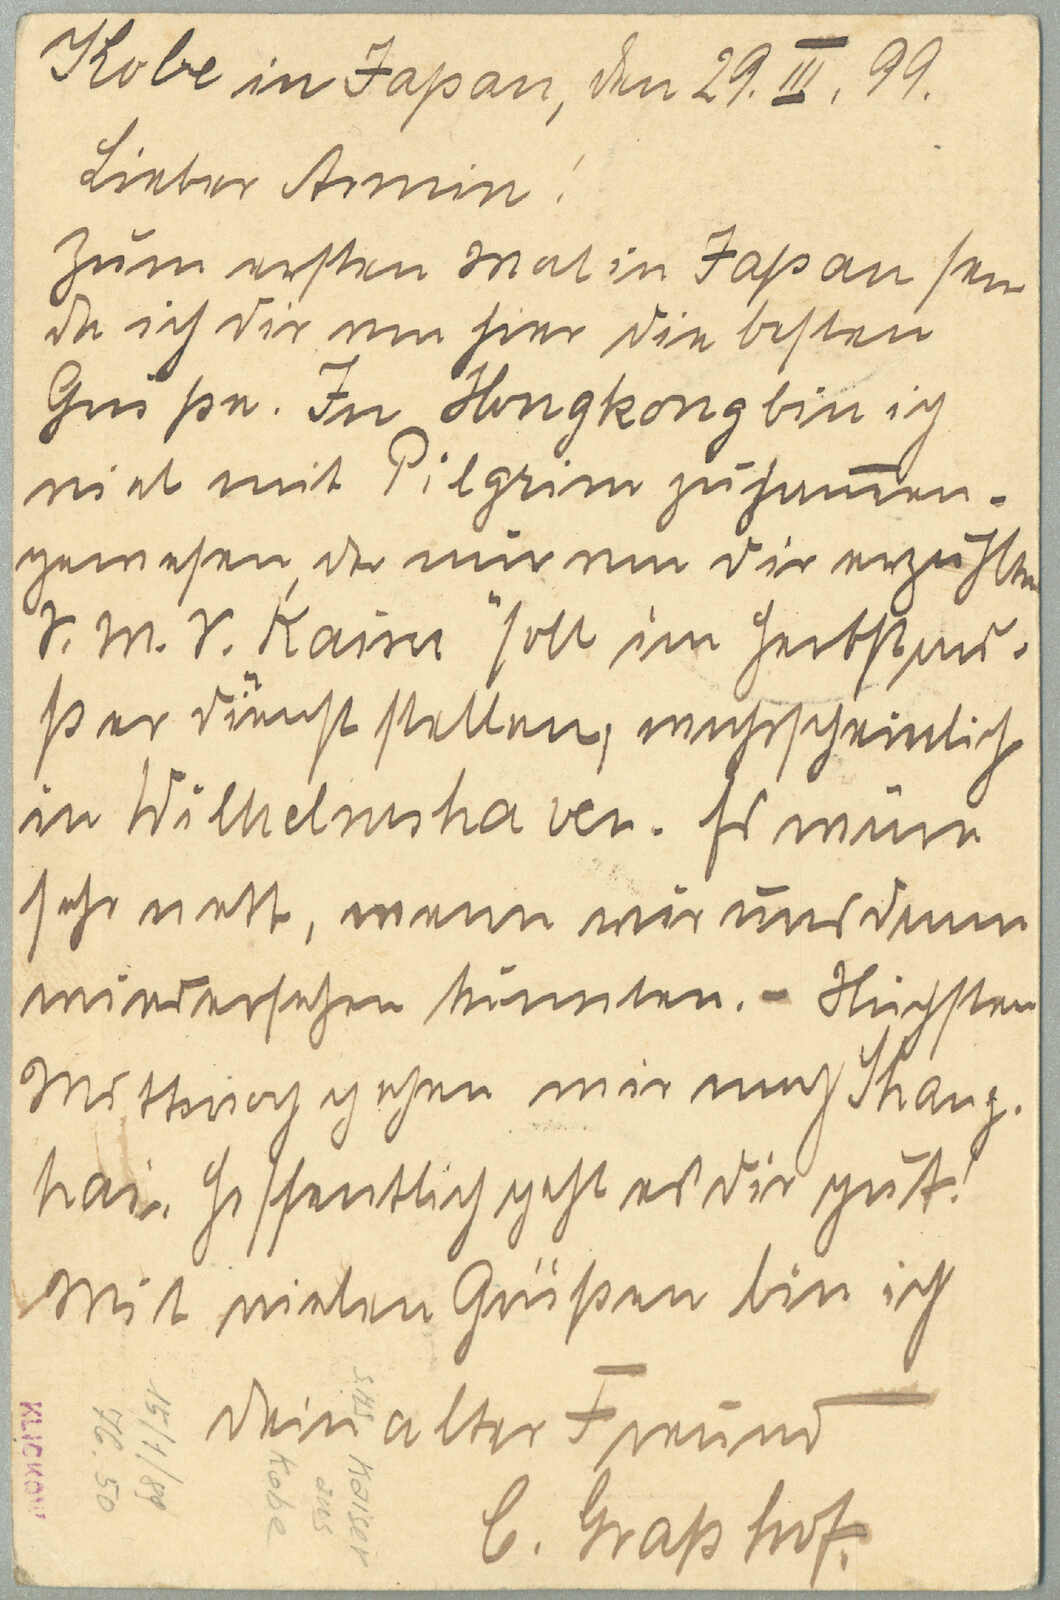 Kobe in Japan, den 29. III. 99.
Lieber Armin!
Zum ersten Mal in Japan sen
de ich dir von hier die besten
Grüße. In Hongkong bin ich
viel mit Pilgrim zusammen-
gewesen, der mir von dir erzählte
S. M. S. Kaiser" soll im Herbst au-
ßer dienst stellen, wahrscheinlich
in Wilhelmshaven. Es wäre
sehr nett, wenn wir uns dann
wiedersehen könnten. - Nächsten
Mittwoch gehen wir nach Shang-
hai. Hoffentlich geht es dir gut!
Mit vielen Grüßen bin ich
dein alter Freund
C. Graßhof.
SMS Kaiser
aus
Kobe
15/1/89
76.50